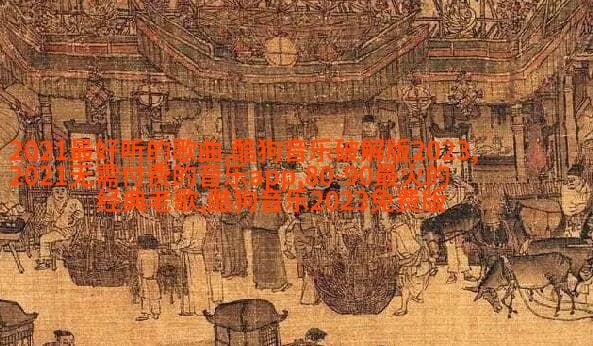 2021最好听的歌曲,酷狗音乐破解版2023,
2021无需付费的音乐app,80_90最火的
经典老歌,酷狗音乐2023免费版